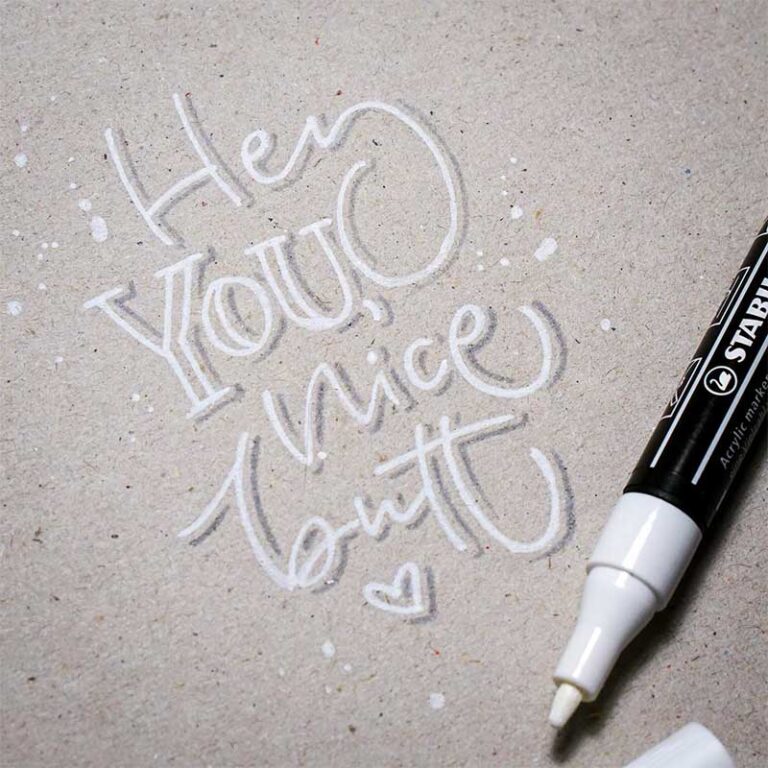 Hey
YOU,
nice
butt
STABIL
Acrylic marker